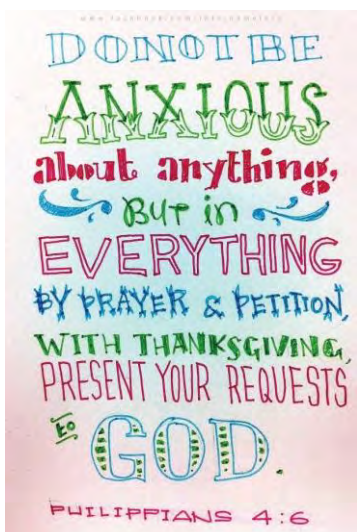 DO NOT BE
ANXIOUS
about anything,
But in
EVERYTHING
BY PRAYER & PETITION,
WITH THANKSGIVING,
PRESENT YOUR REQUESTS
to GOD.
PHILIPPIANS 4:6